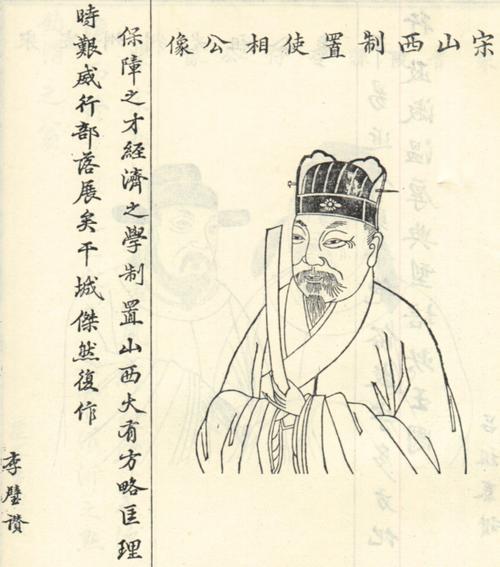 宋山西制置使相公像
保障之才經濟之學制置山西大有方略匡理
時艱威行部落展矣干城傑然復作
李壁讚